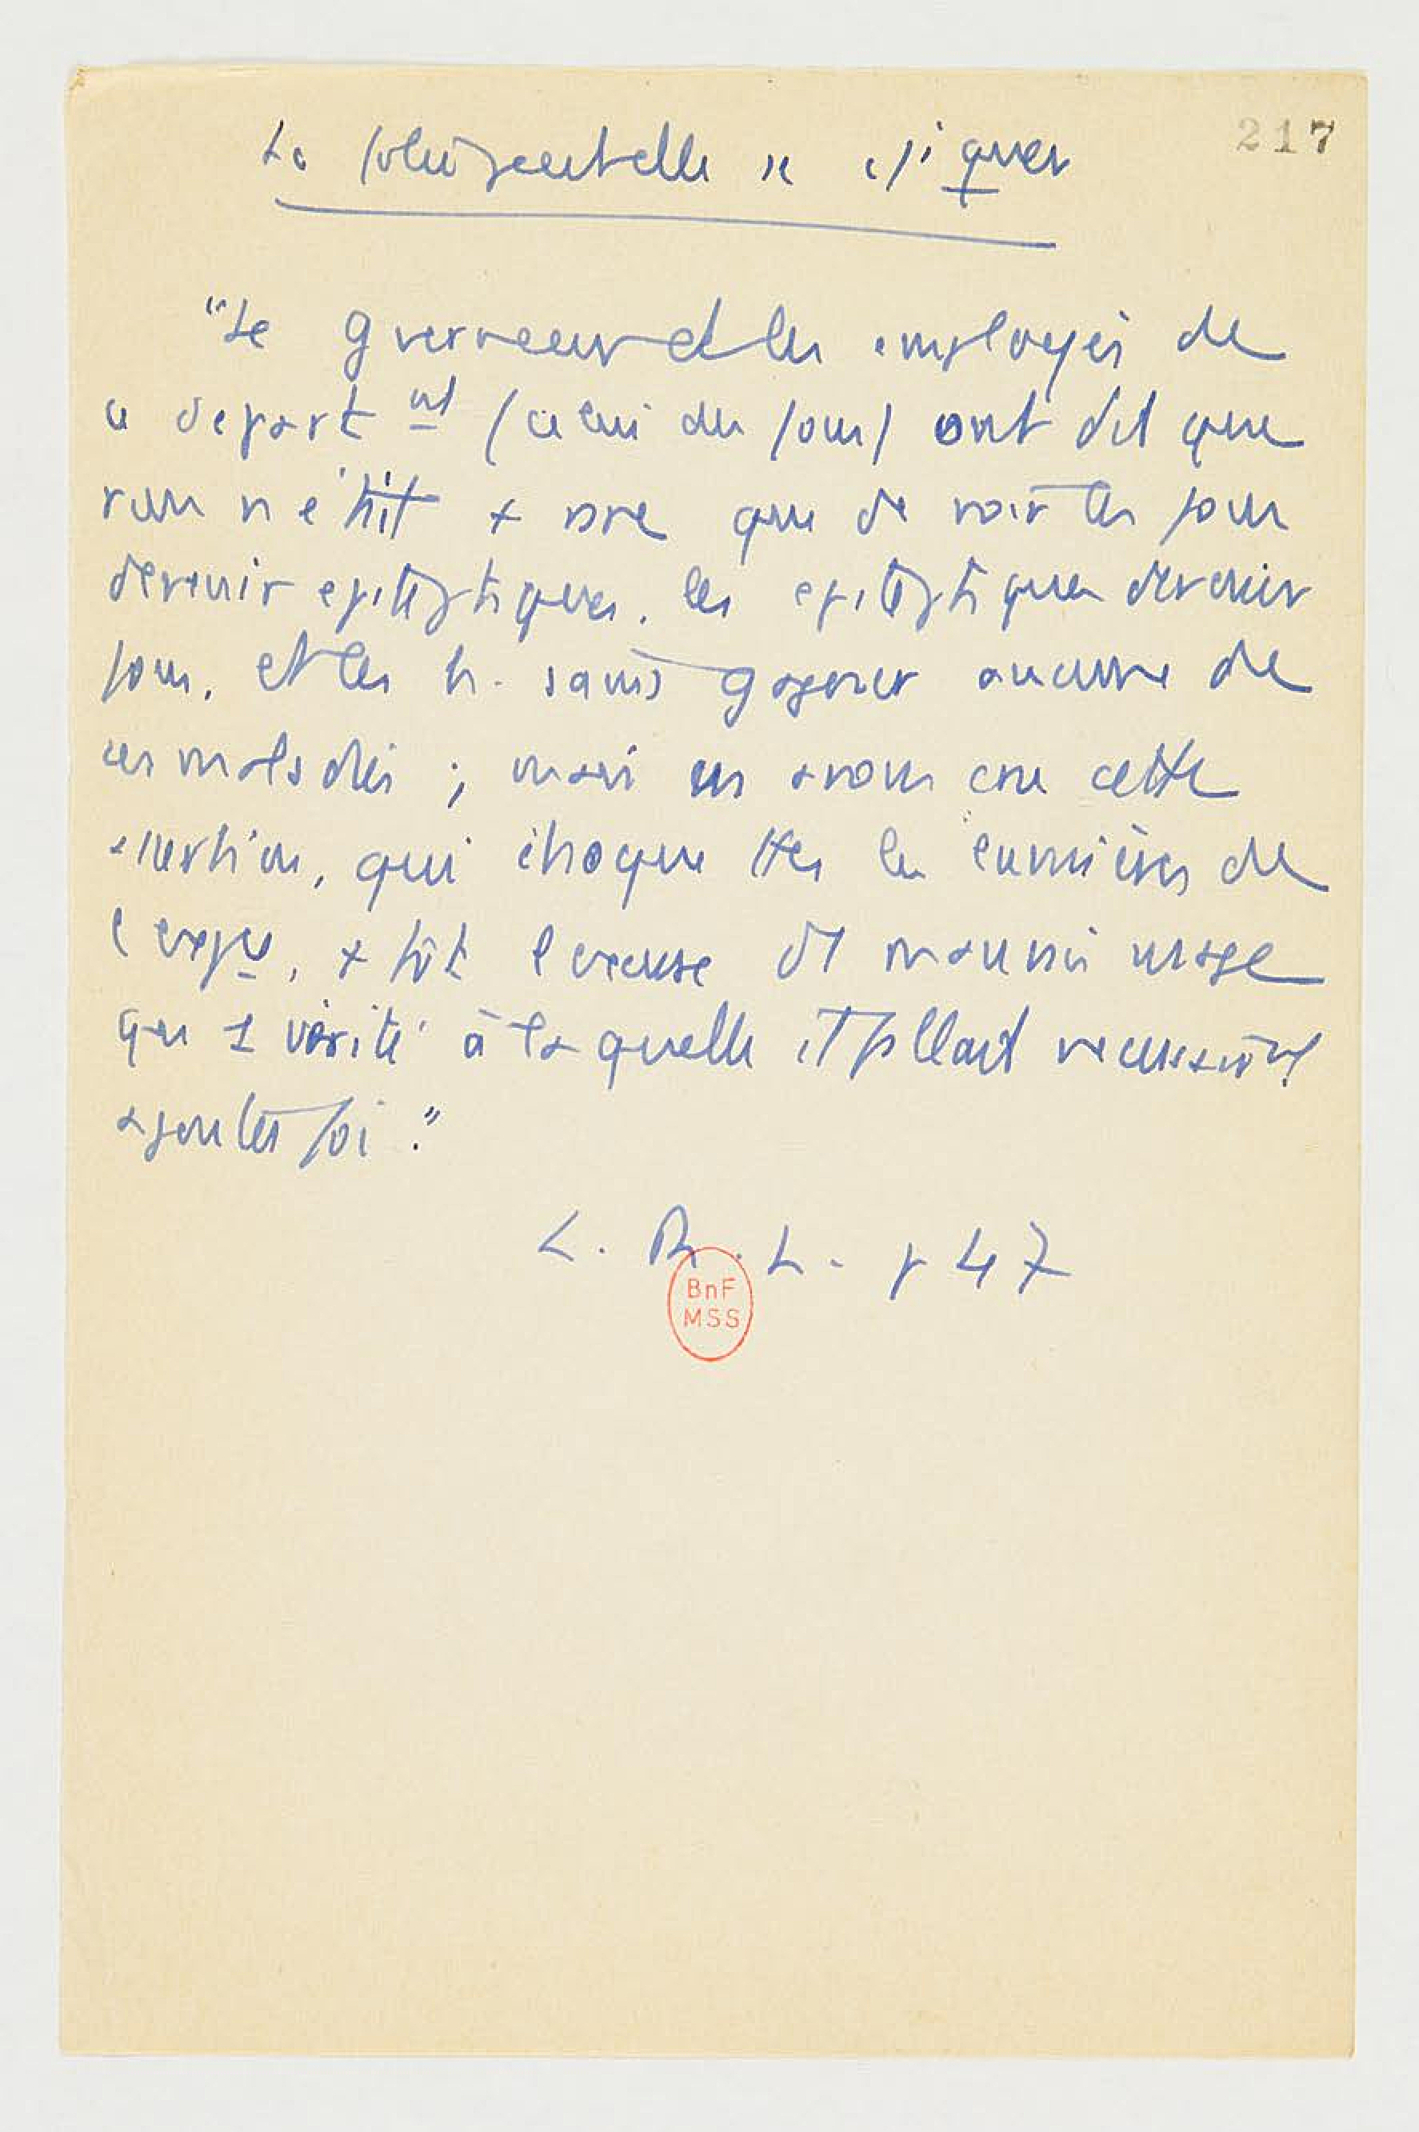 217
La folie peut elle se
"Le gouverneur et les employés de
ce départ nt (celui des fous) ont dit que
rien n'était + rare que de voir les fous
devenir epileptiques, les epileptiques devenir
fous, et les h. sains gagner aucune de
ces maladies ; mais ns avons cru cette
assertion, qui choque ttes les lumières de
l'expce, + tôt l'excuse d'1 mauvais usage
qu'1 vérité à laquelle il fallait necessairt
ajouter foi."
L. R. L. p 47
BnF
MSS